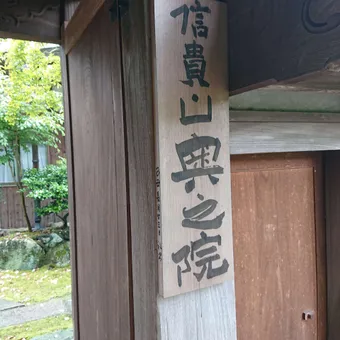 信貴山奥之院